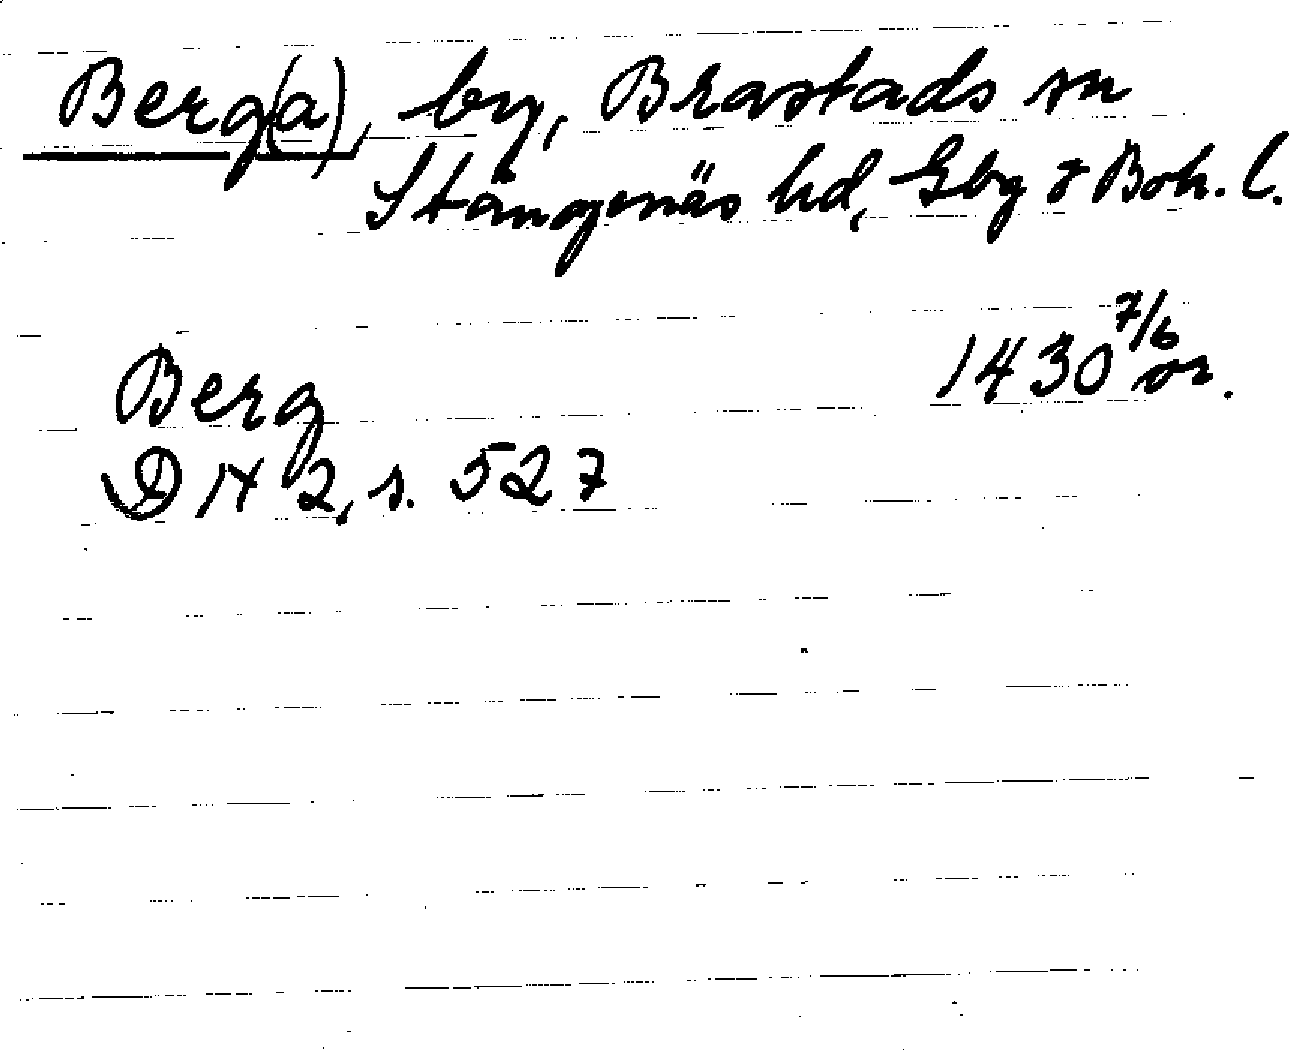 Berg(a), by, Brastads sn
Stångenäs hd, Gbg o Boh. l.
Berg 1430 7/6 or.
DN 2, s. 527